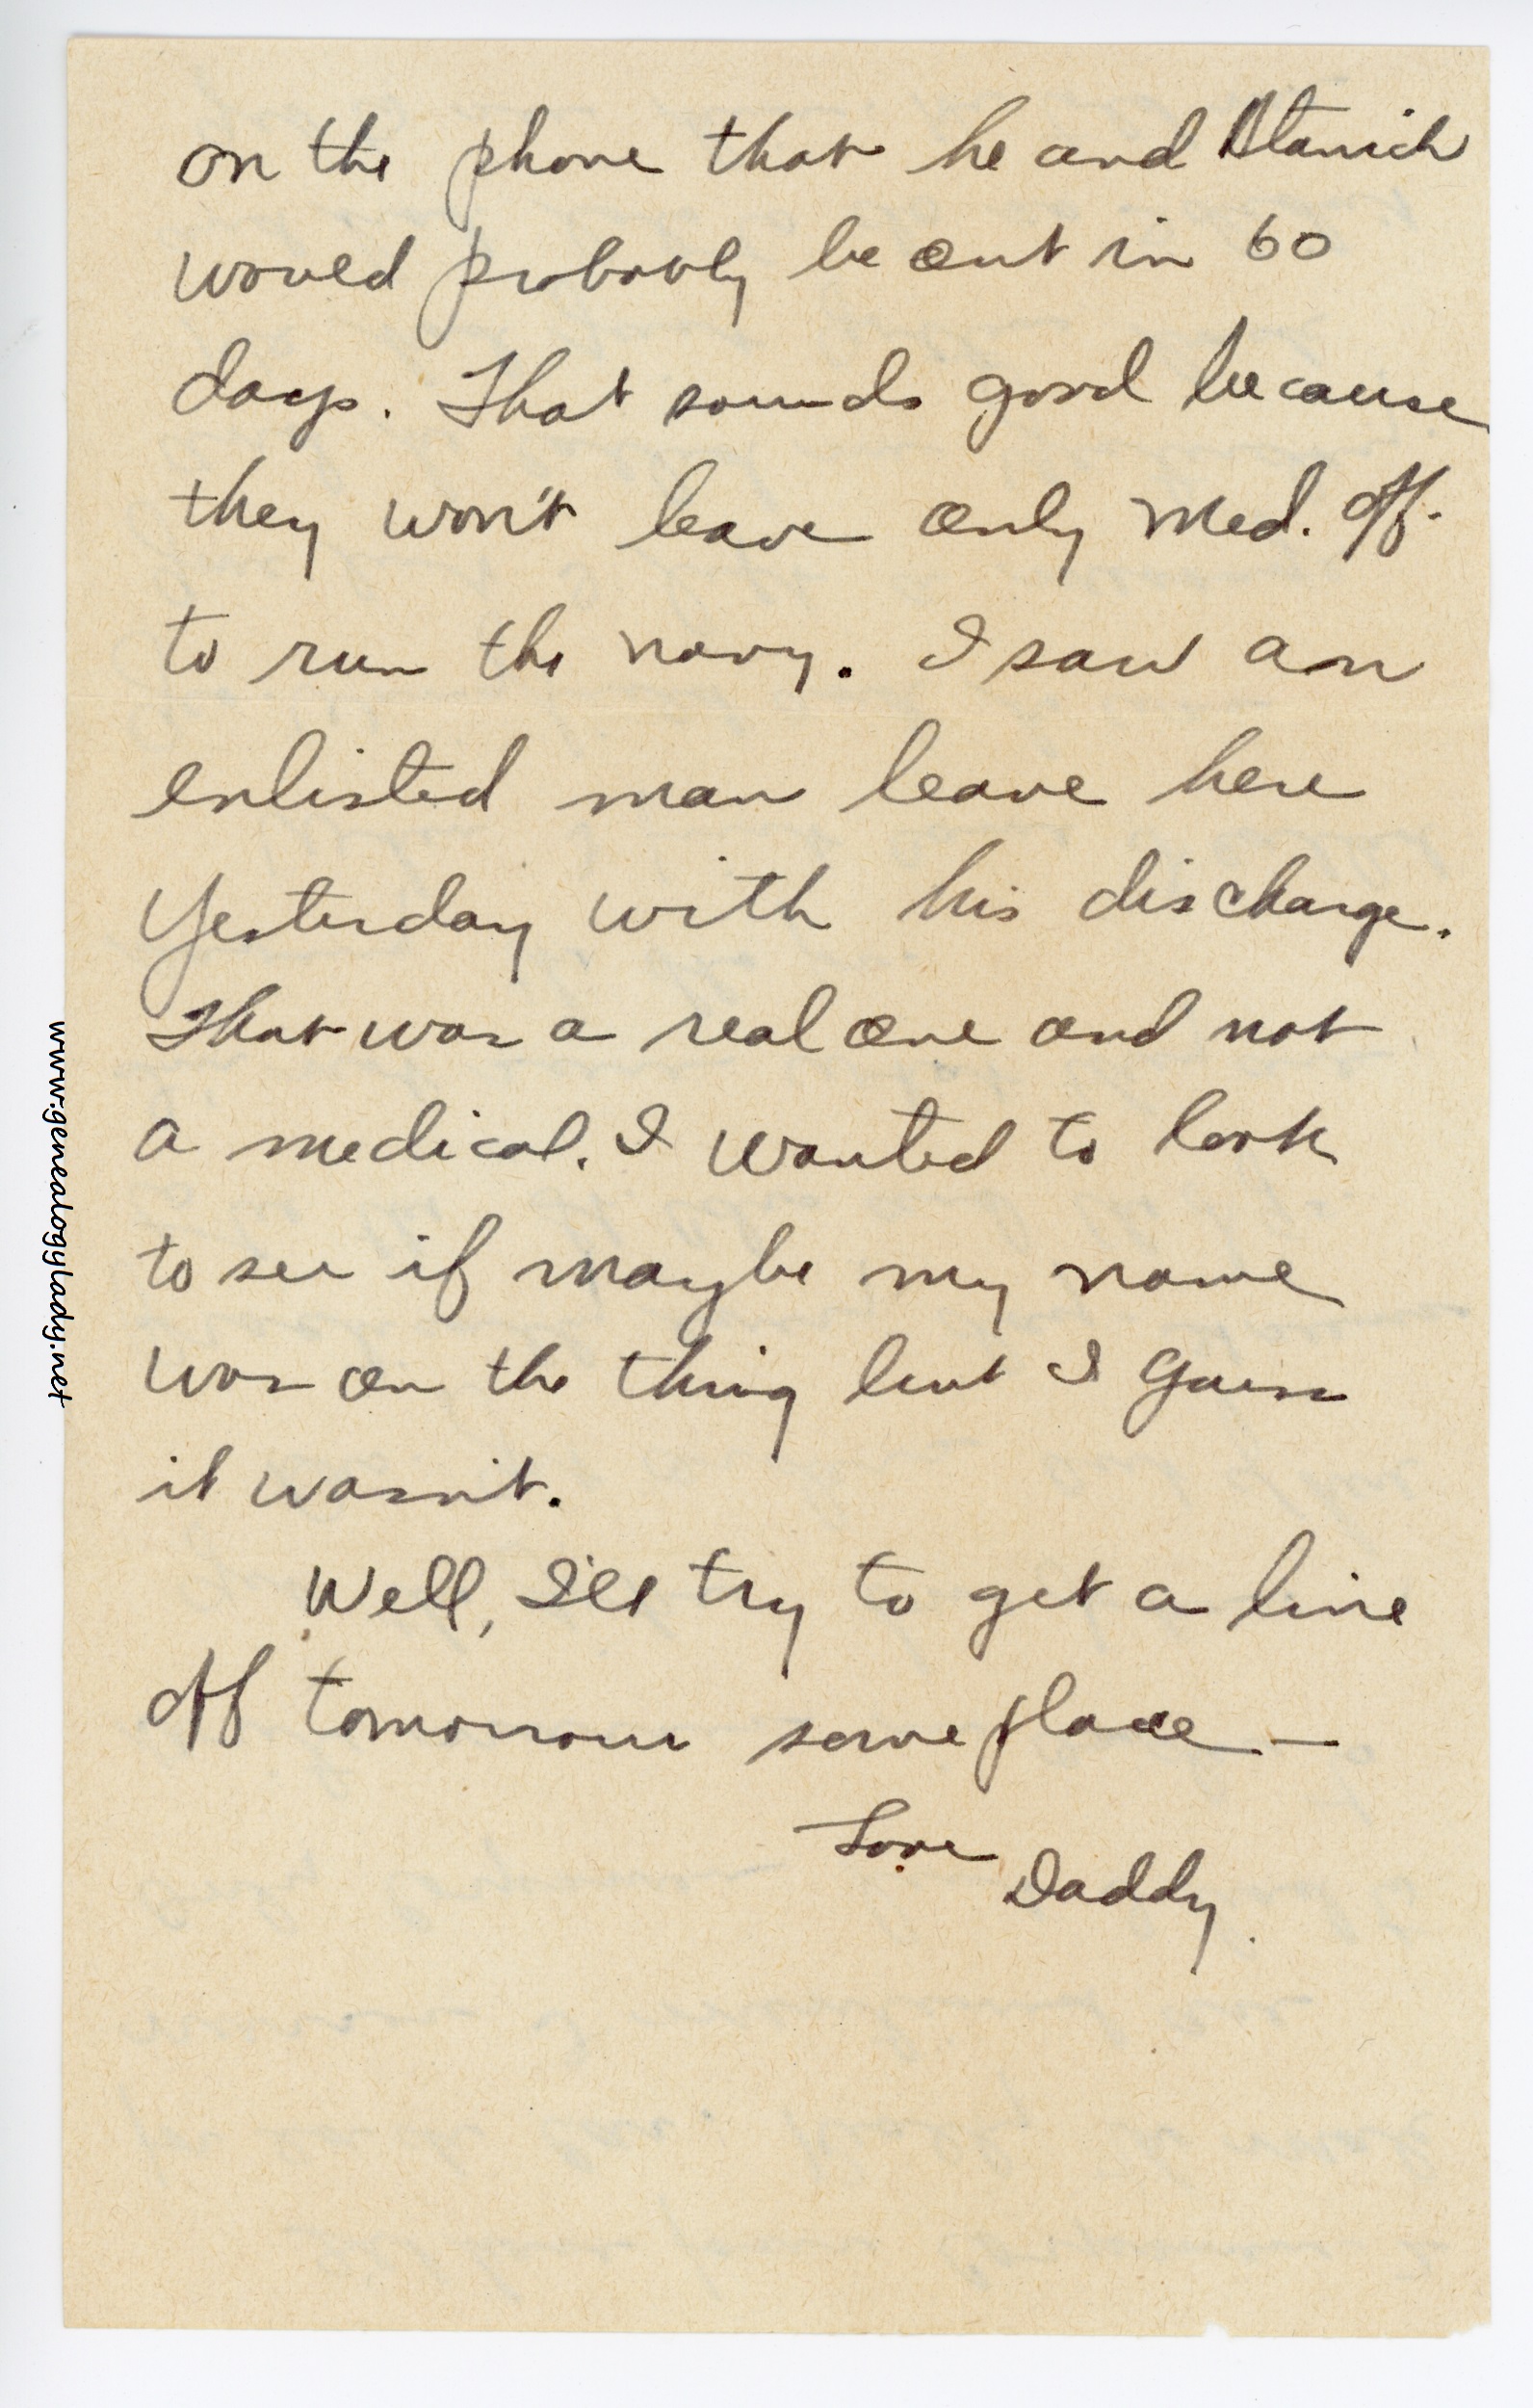 on the phone that he and Stanich
would probably be out in 60
days. That sounds good because
they won't leave only Med. Off.
to run the navy. I saw an
enlisted man leave here
yesterday with his discharge.
That was a real one and not
a medical. I wanted to look
to see if maybe my name
was on the thing but I guess
it wasn't.
Well, I'll try to get a line
off tomorrow some place —
Love
Daddy.
www.genealogylady.net